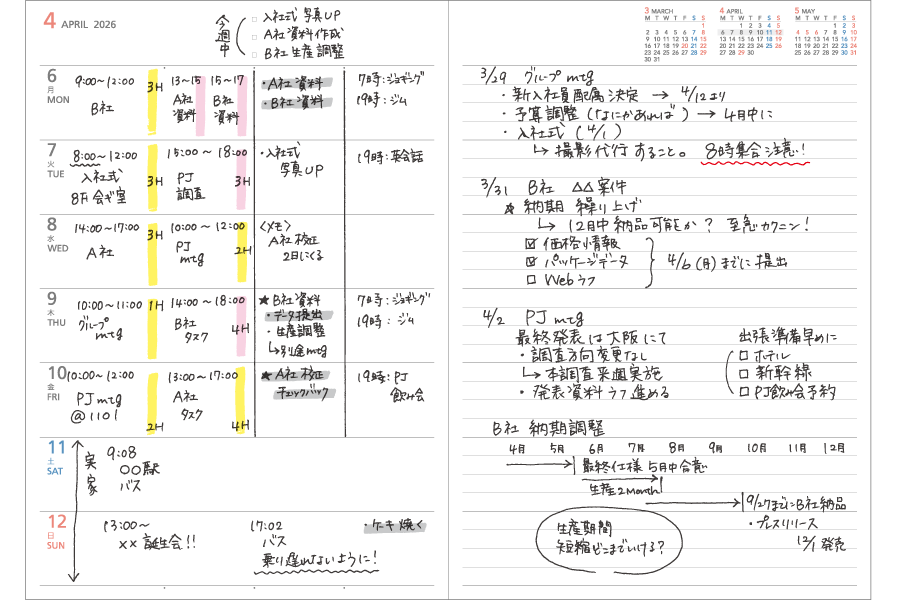 4 APRIL 2026
今週中
□ 入社式 写真UP
□ A社 資料作成
□ B社 生産調整
6 月 MON
9:00〜12:00
B社
3H
13〜15
A社
資料
15〜17
B社
資料
・A社 資料
・B社 資料
7時:ジョギング
19時:ジム
7 火 TUE
8:00〜12:00
入社式
8F 会ギ室
3H
15:00〜18:00
PJ
調査
3H
・入社式
写真UP
19時:英会話
8 水 WED
14:00〜17:00
A社
3H
10:00〜12:00
PJ
mtg
2H
<メモ>
A社 校正
2日にくる
9 木 THU
10:00〜11:00
グループ
mtg
1H
14:00〜18:00
B社
タスク
4H
★ B社 資料
・データ提出
・生産調整
↳別途mtg
7時:ジョギング
19時:ジム
10 金 FRI
10:00〜12:00
PJmtg
@1101
2H
13:00〜17:00
A社
タスク
4H
★ A社 校正
チェックバック
19時:PJ
飲み会
11 土 SAT
実家
9:08
○○駅
バス
12 日 SUN
13:00〜
×× 誕生会!!
17:02
バス
乗り遅れないように!
・ケーキ焼く
3 MARCH
M T W T F S S
1
2 3 4 5 6 7 8
9 10 11 12 13 14 15
16 17 18 19 20 21 22
23 24 25 26 27 28 29
30 31
4 APRIL
M T W T F S S
1 2 3 4 5
6 7 8 9 10 11 12
13 14 15 16 17 18 19
20 21 22 23 24 25 26
27 28 29 30
5 MAY
M T W T F S S
1 2 3
4 5 6 7 8 9 10
11 12 13 14 15 16 17
18 19 20 21 22 23 24
25 26 27 28 29 30 31
3/29 グループ mtg
・新入社員配属決定 → 4/12より
・予算調整 (なにかあれば) → 4月中に
・入社式 (4/1)
↳ 撮影代行すること。 8時集合注意!
3/31 B社 △△案件
★ 納期 繰り上げ
↳ 12月中納品可能か? 至急カクニン!
☑ 価格情報
☑ パッケージデータ
□ Webラフ
4/6(月)までに提出
4/2 PJ mtg
最終発表は大阪にて
・調査方向変更なし
↳ 本調査来週実施
・発表資料ラフ進める
出張準備早めに
□ ホテル
□ 新幹線
□ PJ飲み会予約
B社 納期調整
4月 5月 6月 7月 8月 9月 10月 11月 12月
最終仕様 5月中合意
生産2Month
9/27までにB社納品
・プレスリリース
12/1 発売
生産期間
短縮どこまでいける?